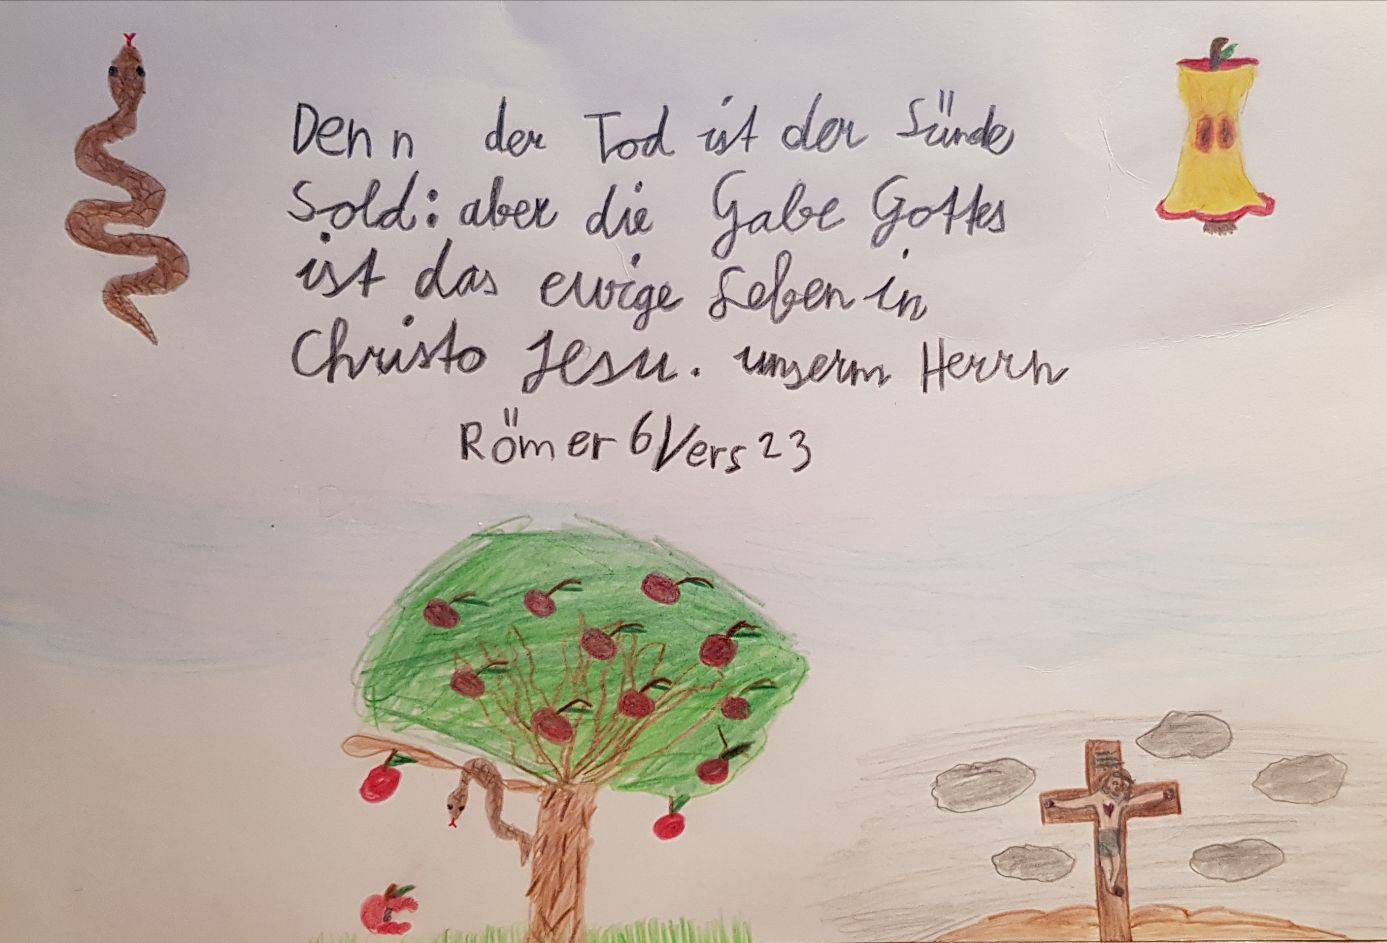 Denn der Tod ist der Sünde
Sold: aber die Gabe Gottes
ist das ewige Leben in
Christo Jesu. unserm Herrn
Römer 6 Vers 23